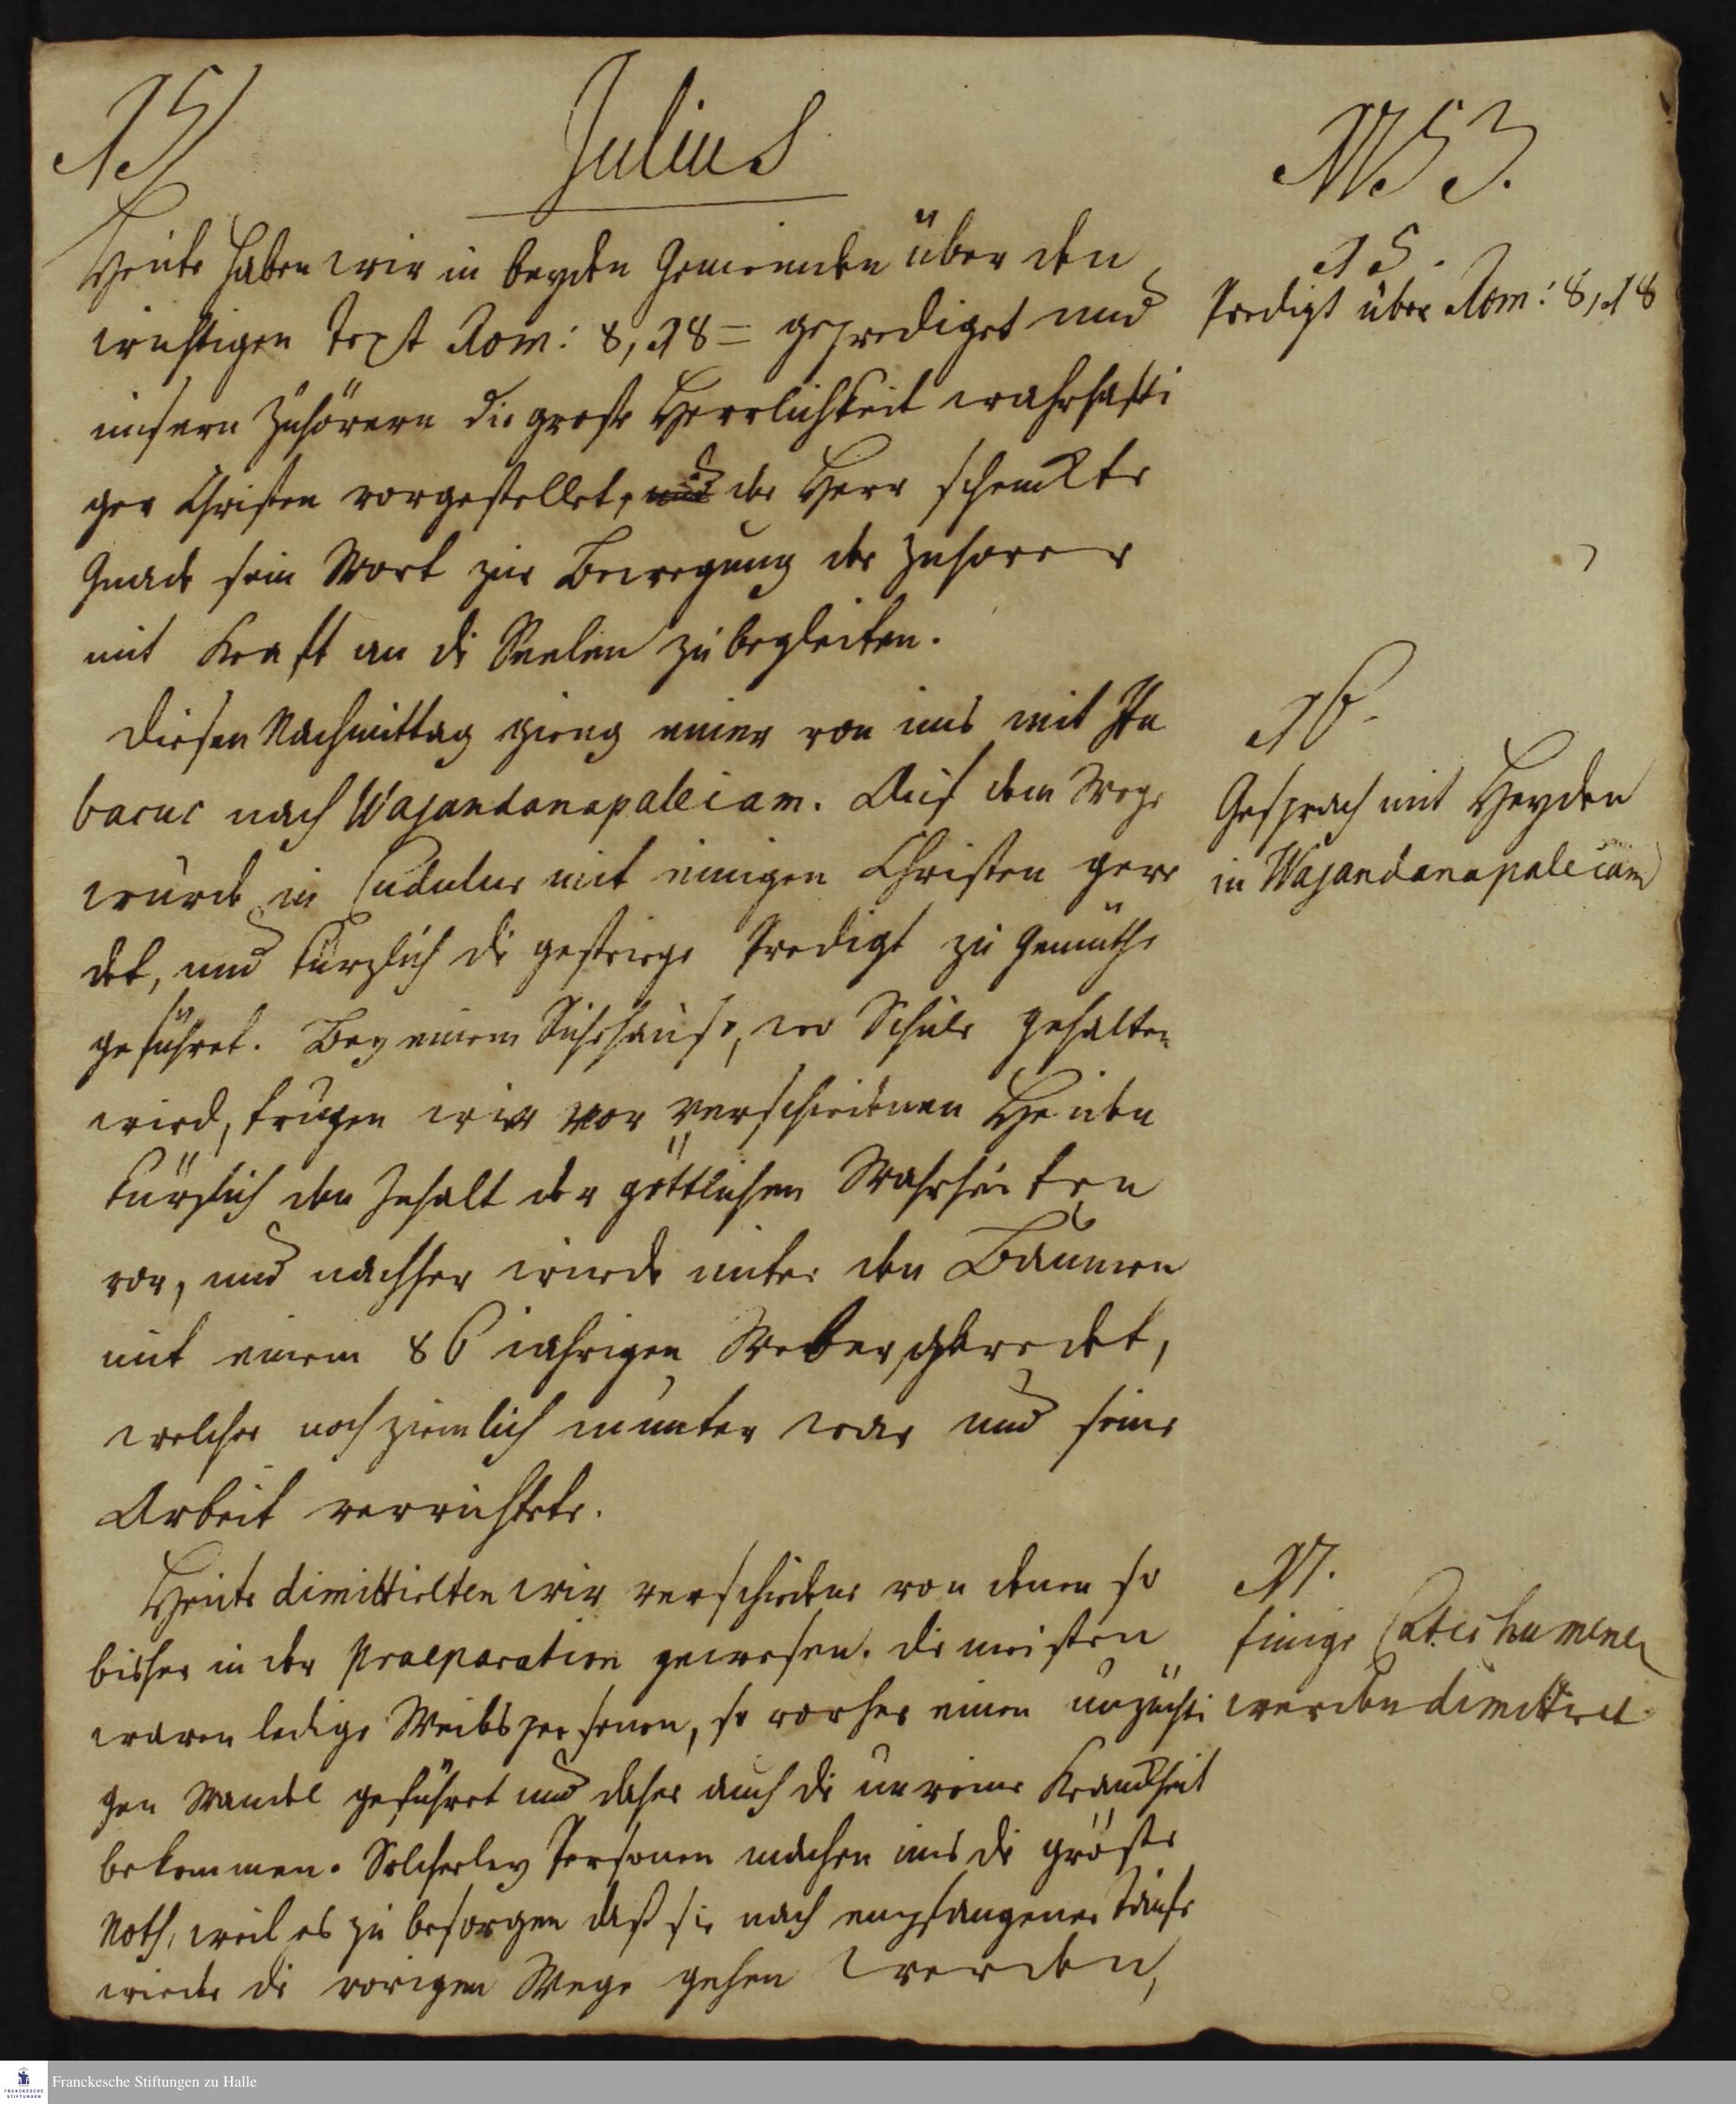 15/
Julius
1753.
Heute haben wir in beyden Gemeinden über den
wichtigen Text Rom: 8, 18 = geprediget und
unsern Zuhörern die große Herrlichkeit wahrhafti
ger Christen vorgestellet, und der Herr schenckte
Gnade sein Wort zur Bewegung der Zuhörer
mit Kraft an die Seelen zu begleiten.
Diesen Nachmittag gieng einer von uns mit Ha
bacuc nach Wajandanapaleiam. Auf dem Wege
wurde in Cudulur mit einigen Christen gere
det, und kürzlich die gestrige Predigt zu Gemüthe
geführet. Bey einem Ruhehause, wo Schule gehalten
wird, trugen wir vor verschiedenen Heiden
kürzlich den Inhalt der göttlichen Wahrheiten
vor, und nachher wurde unter den Bäumen
mit einem 86 jährigen Weber geredet,
welcher noch ziemlich munter war und seine
Arbeit verrichtete.
Heute dimittirten wir verschiedene von denen so
bisher in der Praeparation gewesen. Die meisten
waren ledige Weibspersonen, so vorher einen unzüchti
gen Wandel geführet und daher auch die unreine Kranckheit
bekommen. Solcherley Personen machen uns die gröste
Noth, weil es zu besorgen daß sie nach empfangener Taufe
wieder die vorigen Wege gehen werden,
15.
Predigt über Rom: 8, 18
16.
Gespräch mit Heyden
in Wajandanapaleiam
17.
Einige Catechumenen
werden dimittiret.
Franckesche Stiftungen zu Halle
FRANCKESCHE
STIFTUNGEN